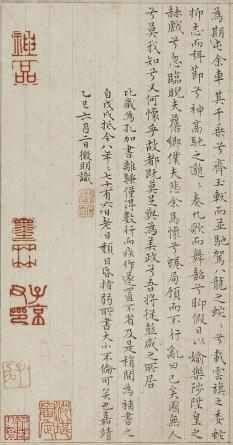 為期屯余車其千乘兮齊玉軑而並馳駕八龍之蜿〻兮載雲旗之委蛇
抑志而弭節兮神高馳之邈〻奏九歌而舞韶兮聊假日以媮樂陟陞皇之
赫戲兮忽臨睨夫舊鄉僕夫悲余馬懷兮蜷局顧而不行亂曰已矣國無人
兮莫我知兮又何懷乎故都既莫足與為美政兮吾將從彭咸之所居
比歲為孔加書離騷僅得數行而疾作遂置不省及是稍閒為補書之
自戊戌抵今八年七十有六日老日頹目昏指弱所書大小不倫可笑也嘉靖
乙巳六月二日徵明識
神品
墨林
子京